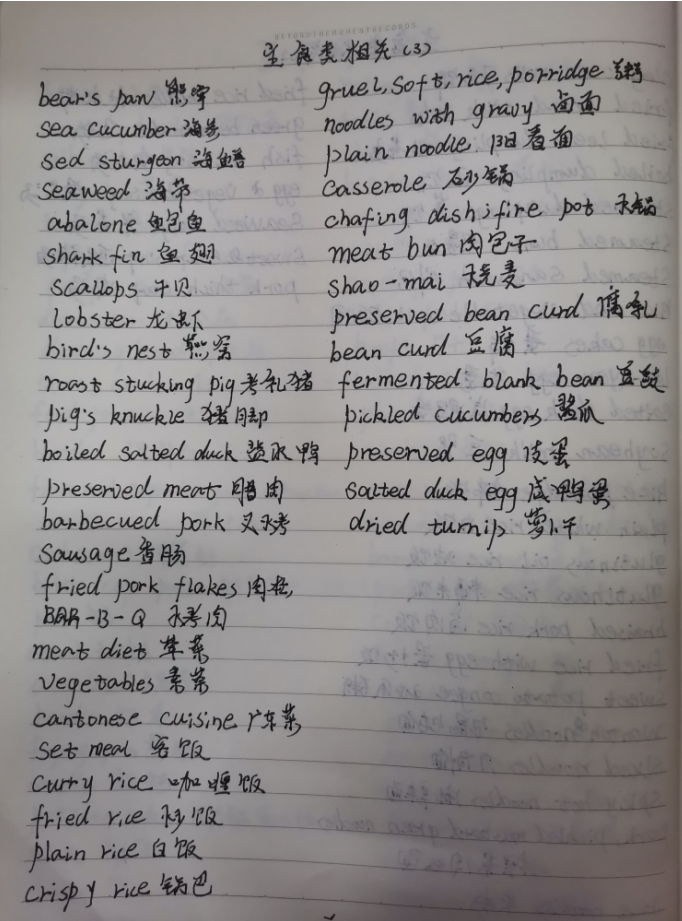 主食类相关(3)
bear's paw 熊掌
sea cucumber 海参
sed sturgeon 海鳝
seaweed 海带
abalone 鲍鱼
shark fin 鱼翅
scallops 干贝
lobster 龙虾
bird's nest 燕窝
roast stucking pig 考乳猪
pig's knuckle 猪脚
boiled salted duck 盐水鸭
preserved meat 腊肉
barbecued pork 叉烧
sausage 香肠
fried pork flakes 肉松
BAR-B-Q 烤肉
meat diet 荤菜
vegetables 素菜
cantonese cuisine 广东菜
set meal 客饭
curry rice 咖喱饭
fried rice 炒饭
plain rice 白饭
crispy rice 锅巴
gruel, soft, rice, porridge 粥
noodles with gravy 卤面
plain noodle 阳春面
casserole 砂锅
chafing dish; fire pot 火锅
meat bun 肉包子
shao-mai 烧麦
preserved bean curd 腐乳
bean curd 豆腐
fermented blank bean 豆豉
pickled cucumbers 酱瓜
preserved egg 皮蛋
salted duck egg 咸鸭蛋
dried turnip 萝卜干